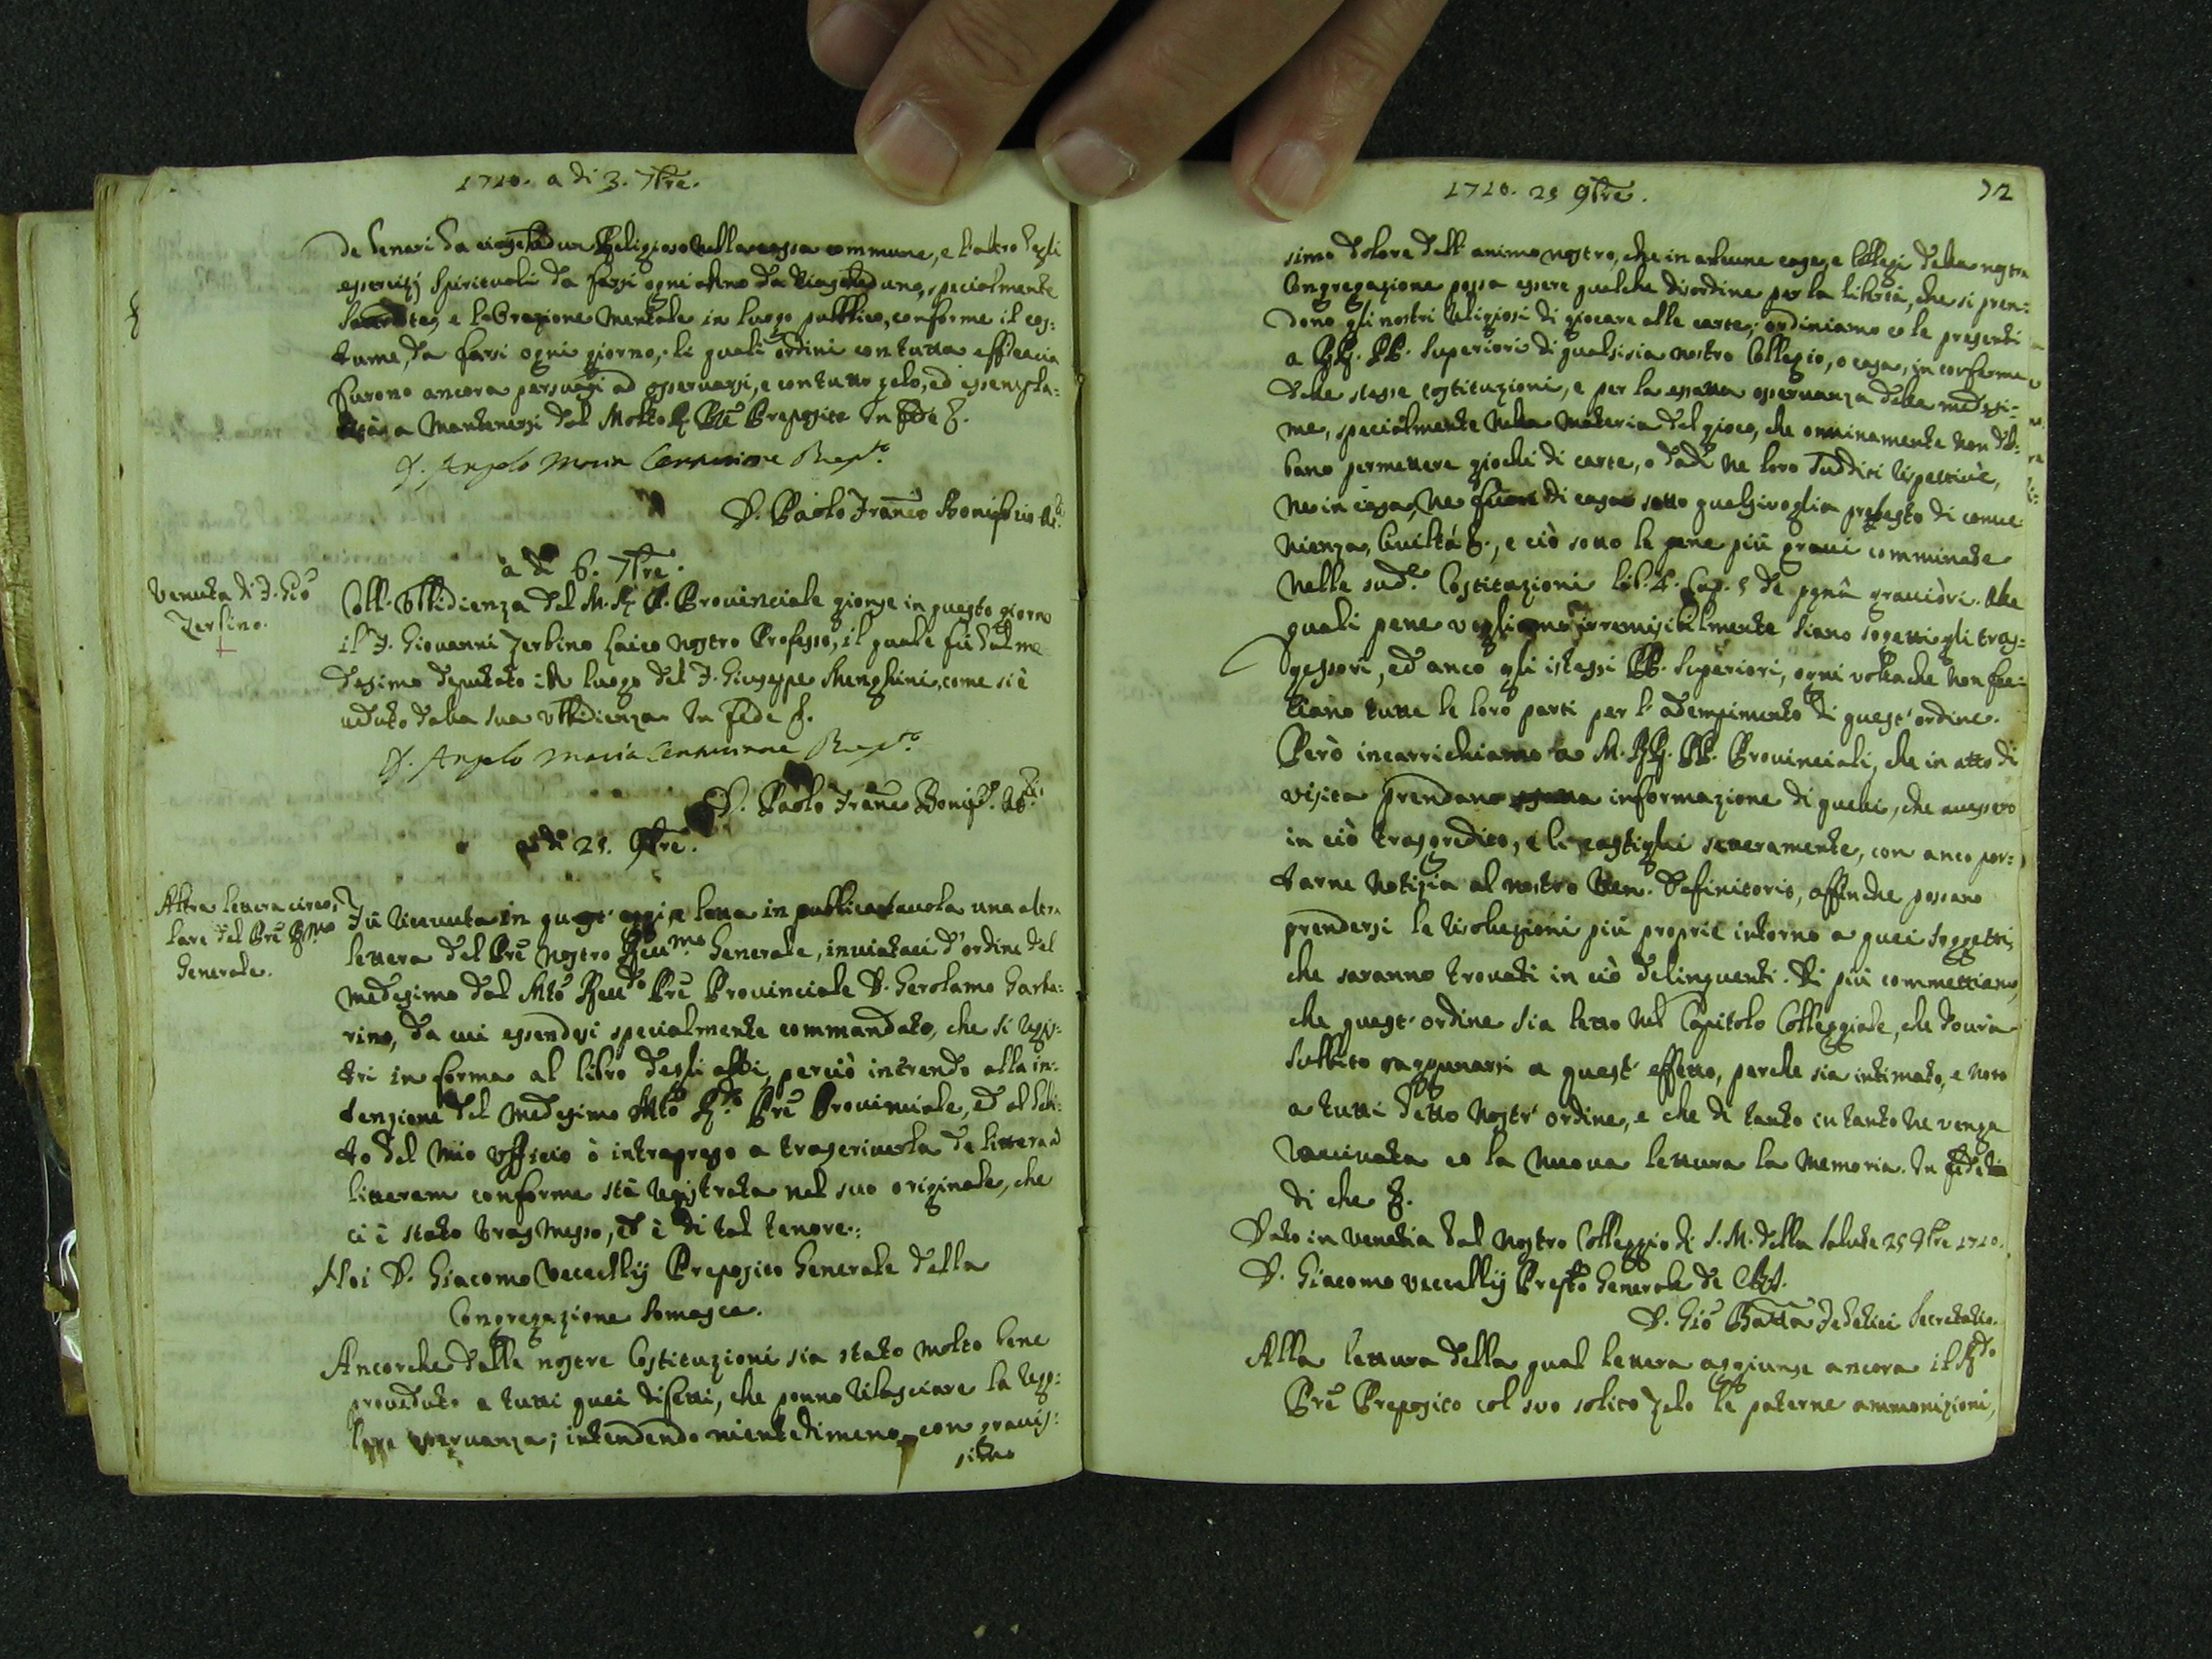 1710. a di 3. 7bre.
de denari da ciascedun Religioso nella cassa commune, e l'altro degli
essercizij spirituali da farsi ogni anno da ciascheduno, specialmente
e l'Orazione Mentale in luogo publico, conforme il cos:
tume, da farsi ogni giorno, li quali ordini con tutta efficacia
furono ancora persuasi ad osservarsi, e con tutto zelo, ed essempla:
a mantenersi dal Molto R. Pre Preposito In fede &.
D. Angelo Maria Centurione Prep.to
D. Paolo Franco Bonifazio
a di 6. 7bre.
Venuta di F. Gio
Zerbino.
Coll' Ubbidienza del M. R. P. Provinciale gionse in questo giorno
il F. Giovanni Zerbino Laico nostro Professo, il quale fù dal me
desimo deputato in luogo del F. Giuseppe Menghini, come si è
veduto dalla sua ubbidienza. In fede &.
D. Angelo Maria Centurione Prep.to
D. Paolo Franco Bonif.o
a di 25. 9bre.
Altra lettera circo:
lare del Pre R.mo
Generale.
Fù ricevuta in quest' oggi, e letta in publica tavola una altra
lettera del Pre nostro Reu.mo Generale, inviataci d'ordine del
medesimo dal Mto Reu.do Pre Provinciale D. Gerolamo Garba:
rino, da cui essendosi specialmente commandato, che si regis:
tri in forma al libro degli atti, perciò inerendo alla in:
tenzione del medesimo Mto R.do Pre Provinciale, ed al debi:
to del mio ufficio ò intrapreso a trascriverla de littera ad
litteram conforme stà registrata nel suo originale, che
ci è stato trasmesso, ed è di tal tenore:
Noi D. Giacomo Vecellij Preposito Generale della
Congregazione Somasca.
Ancorche dalle nostre Costituzioni sia stato molto bene
proveduto a tutti quei difetti, che ponno rilasciare la rego:
lare osservanza; intendendo nientedimeno con gravis:
simo
1710. 25 9bre.
72
simo dolore dell' animo nostro, che in alcune case, e Collegi della nostra
Congregazione possa essere qualche disordine per la libertà, che si pren:
dono gli nostri Religiosi di giocare alle carte; ordiniamo co le presenti
a RR. PP. Superiori di qualsisia nostro Collegio, o casa, in conforme
delle stesse costituzioni, e per la essatta osservanza delle medesi:
me, specialmente nella materia del gioco, che onninamente non deb:
bano permettere giochi di carte, o dadi ne loro sudditi rispettivè,
ne in casa, ne fuori di casa sotto qualsivoglia pretesto di conve
nienza, Civiltà &., e ciò sotto le pene più gravi comminate
nelle sud.e Costituzioni lib. 4. Cap. 5 de pœnâ graviori. Alle
quali pene vogliamo irremisibilmente siano sogetti gli tras:
gessori, ed anco gli istessi PP. Superiori, ogni volta che non fac:
ciano tutte le loro parti per l' adempimento di quest' ordine.
Però incarrichiamo a M. RR. PP. Provinciali, che in atto di
visita prendano informazione di quelli, che avessero
in ciò trasgredito, e li castighi severamente, con anco por:
tarne notizia al nostro Ven. Definitorio, affinche possano
prendersi le risoluzioni più proprie intorno a quei soggetti,
che saranno trovati in ciò delinquenti. Di più commettiamo,
che quest' ordine sia letto nel Capitolo Colleggiale, che dovrà
subbito raggunarsi a quest' effetto, perche sia intimato, e noto
a tutti detto nostr' ordine, e che di tanto in tanto ne venga
ravivata co la nuova lettura la memoria. In fede
di che &.
Dato in Venetia dal nostro Colleggio di S. M. della Salute 25 9bre 1710.
D. Giacomo Vecellij Prepto Generale de CRS.
D. Gio Batta Segretario.
Alla lettura della qual lettera aggiunse ancora il R.do
Pre Preposito col suo solito zelo le paterne ammonizioni,